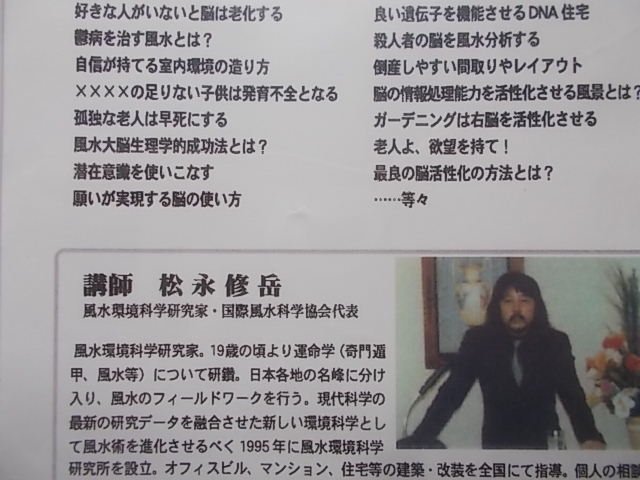 好きな人がいないと脳は老化する
鬱病を治す風水とは？
自信が持てる室内環境の造り方
××××の足りない子供は発育不全となる
孤独な老人は早死にする
風水大脳生理学的成功法とは？
潜在意識を使いこなす
願いが実現する脳の使い方
良い遺伝子を機能させるDNA住宅
殺人者の脳を風水分析する
倒産しやすい間取りやレイアウト
脳の情報処理能力を活性化させる風景とは？
ガーデニングは右脳を活性化させる
老人よ、欲望を持て！
最良の脳活性化の方法とは？
……等々
講師　松永修岳
風水環境科学研究家・国際風水科学協会代表
風水環境科学研究家。19歳の頃より運命学（奇門遁
甲、風水等）について研鑽。日本各地の名峰に分け
入り、風水のフィールドワークを行う。現代科学の
最新の研究データを融合させた新しい環境科学とし
て風水術を進化させるべく1995年に風水環境科学
研究所を設立。オフィスビル、マンション、住宅等の建築・改装を全国にて指導。個人の相談